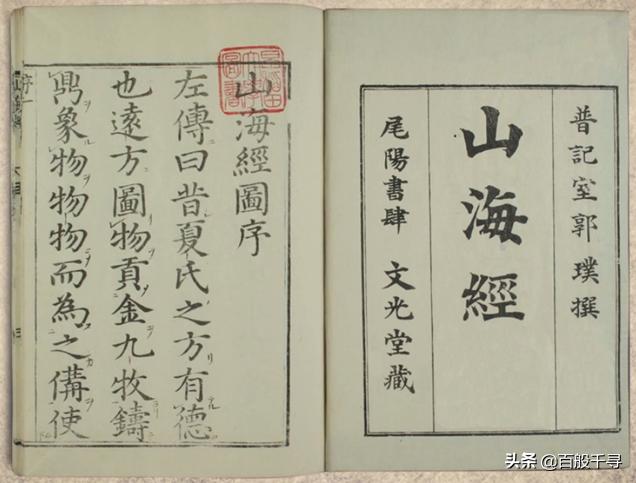 普記室郭璞撰
山海經
尾陽書肆 文光堂藏
山海經圖序
左傳曰昔夏氏之方有德
也遠方圖物貢金九牧鑄
鼎象物物物而為之備使
序一
头条 @百般千寻